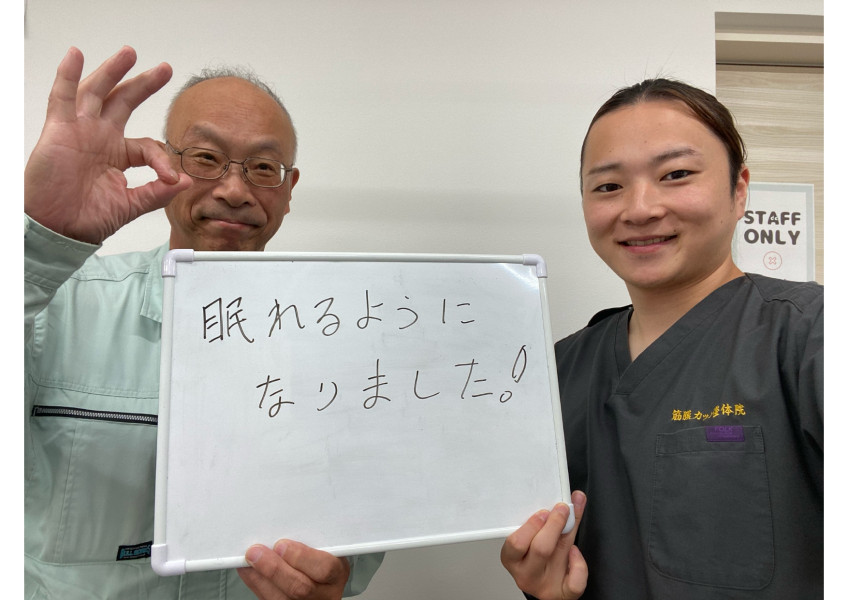 眠れるように
なりました!
STAFF
ONLY
筋膜カッパ整体院